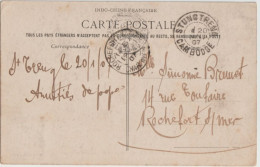 INDO-CHINE FRANÇAISE
CARTE POSTALE
TOUS LES PAYS ÉTRANGERS N'ACCEPTENT PAS LA CORRESPONDANCE AU RECTO
Correspondance
STUNGTRENG
CAMBODGE
St Treng 20/10/
Amitiés de papa
Mlle Simonne Brunet
14 rue Toufaire
Rochefort s/mer